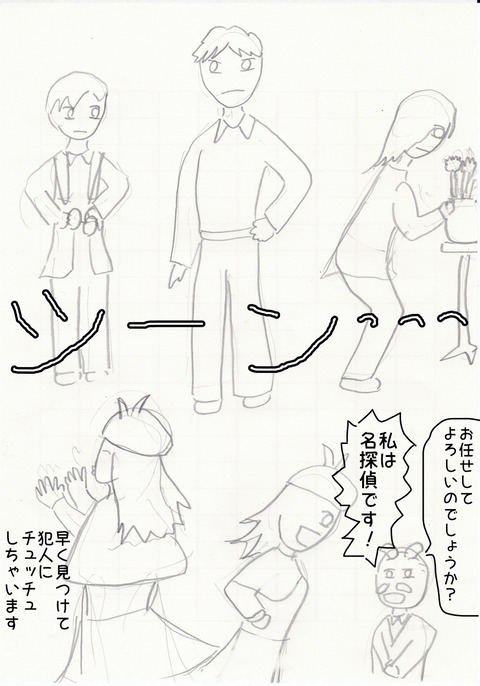 ツーン・・・
お任せして
よろしいのでしょうか?
私は
名探偵です!
早く見つけて
犯人に
チュッチュ
しちゃいます